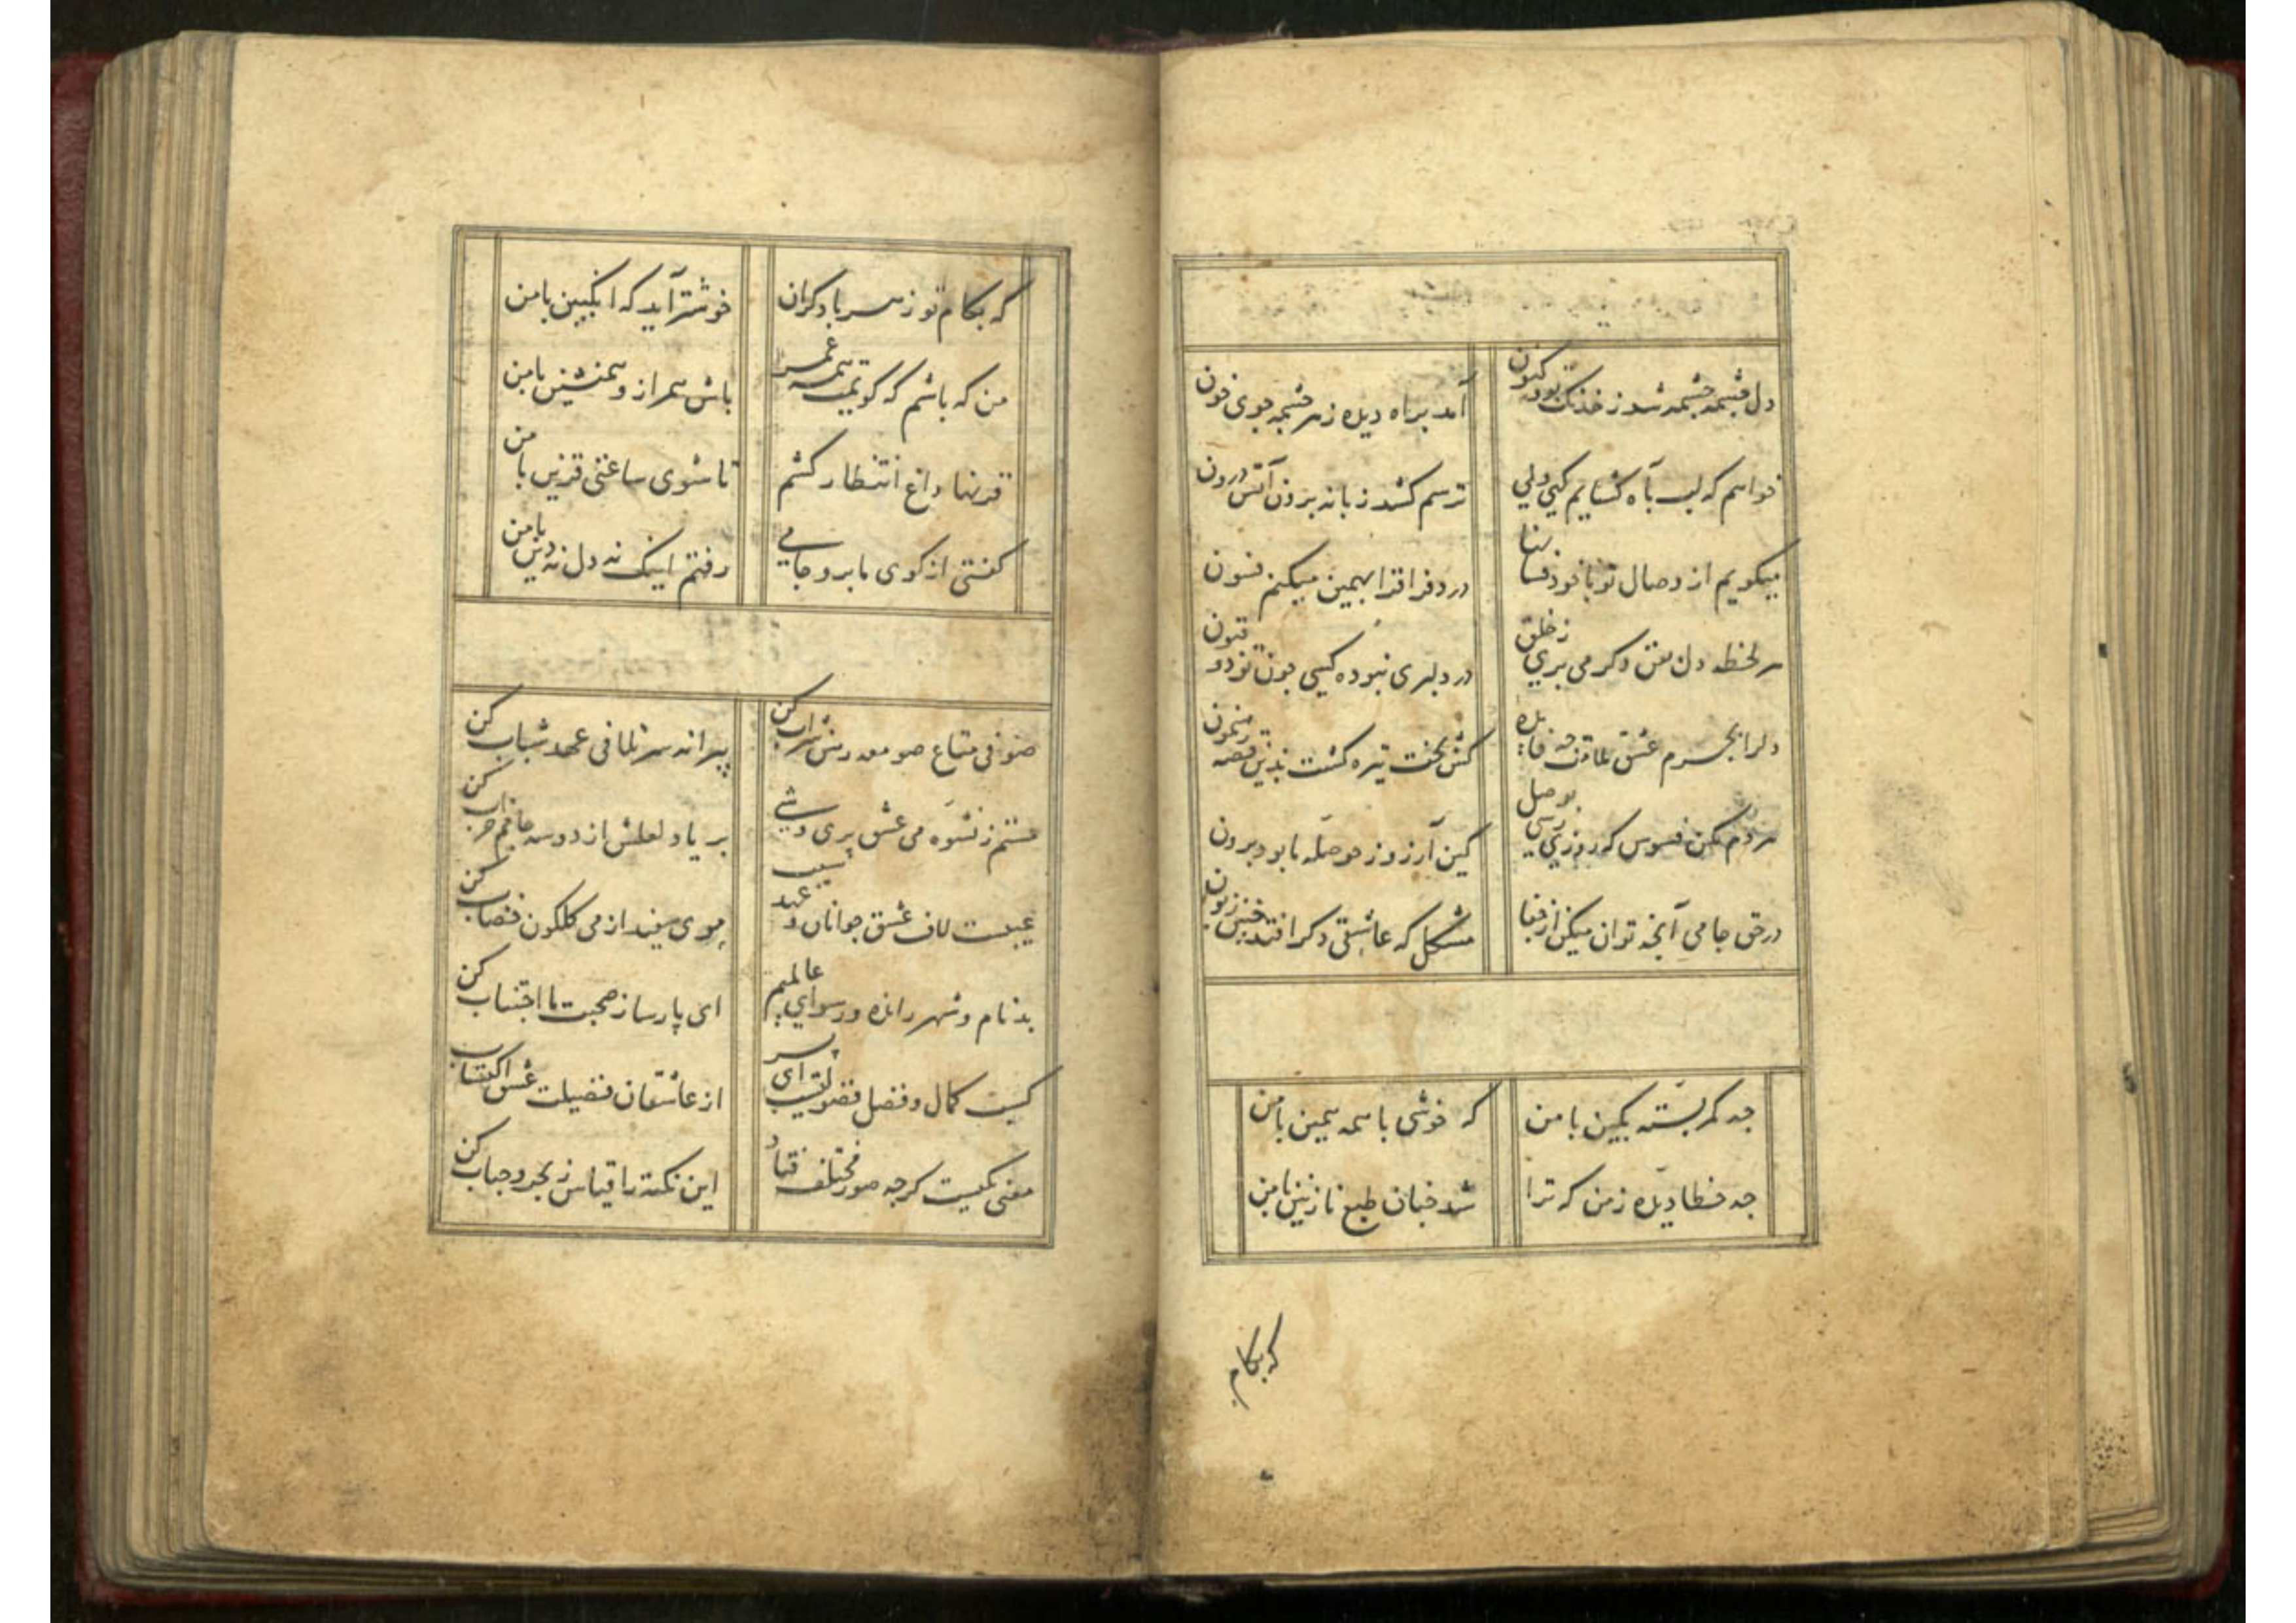 دل چشمه چشمه شد ز خدنک تو و کنون
آمد براه دیده ز هر چشمه جوی خون
خواهم که لب بآه کشایم کهی ولی
ترسم کشد زبانه برون آتش درون
میکویم از وصال تو با خود فسانها
درد فراقرا بهمین میکنم فسون
هر لحظه دل بفن دکر می بری ز خلق
در دلبری نبوده کسی چون تو ذو فنون
دلرا بجرم عشق ملامت چه فایده
کش بخت تیره کشت بدین قصه رهنمون
هر دم مکن فسوس که روزی رسی بوصل
کین آرزو ز حوصله ما بود برون
در حق جامی آنچه توان میکن از جفا
مشکل که عاشقی دکر افتد چنین زبون
چه کمر بسته بکین با من
که خوشی با همه همین با من
چه خطا دیده ز من که ترا
شد چنان طبع نازنین با من
که بکام
که بکام تو زهر با دکران
خوشتر آید که انکبین با من
من که باشم که کویمت همه عمر
باش همراز و همنشین با من
قرنها داغ انتظار کشم
تا شوی ساعتی قرین با من
کفتی از کوی ما برو جامی
رفتم اینک نه دل نه دین با من
صوفی متاع صومعه رهن شراب کن
پیرانه سر تلافی عهد شباب کن
هستم ز نشوه می عشق پری وشی
بر یاد لعلش از دو سه جامم خراب کن
عیبست لاف عشق جوانان و شیب عهد
موی سفید از می کلکون خضاب کن
بدنام و شهر رانده و رسوای عالمیم
ای پارسا ز صحبت ما اجتناب کن
کسب کمال و فضل فضولیست ای پسر
از عاشقان فضیلت عشق اکتساب کن
معنی یکیست کرچه صور مختلف فتاد
این نکته را قیاس ز بحر و حباب کن